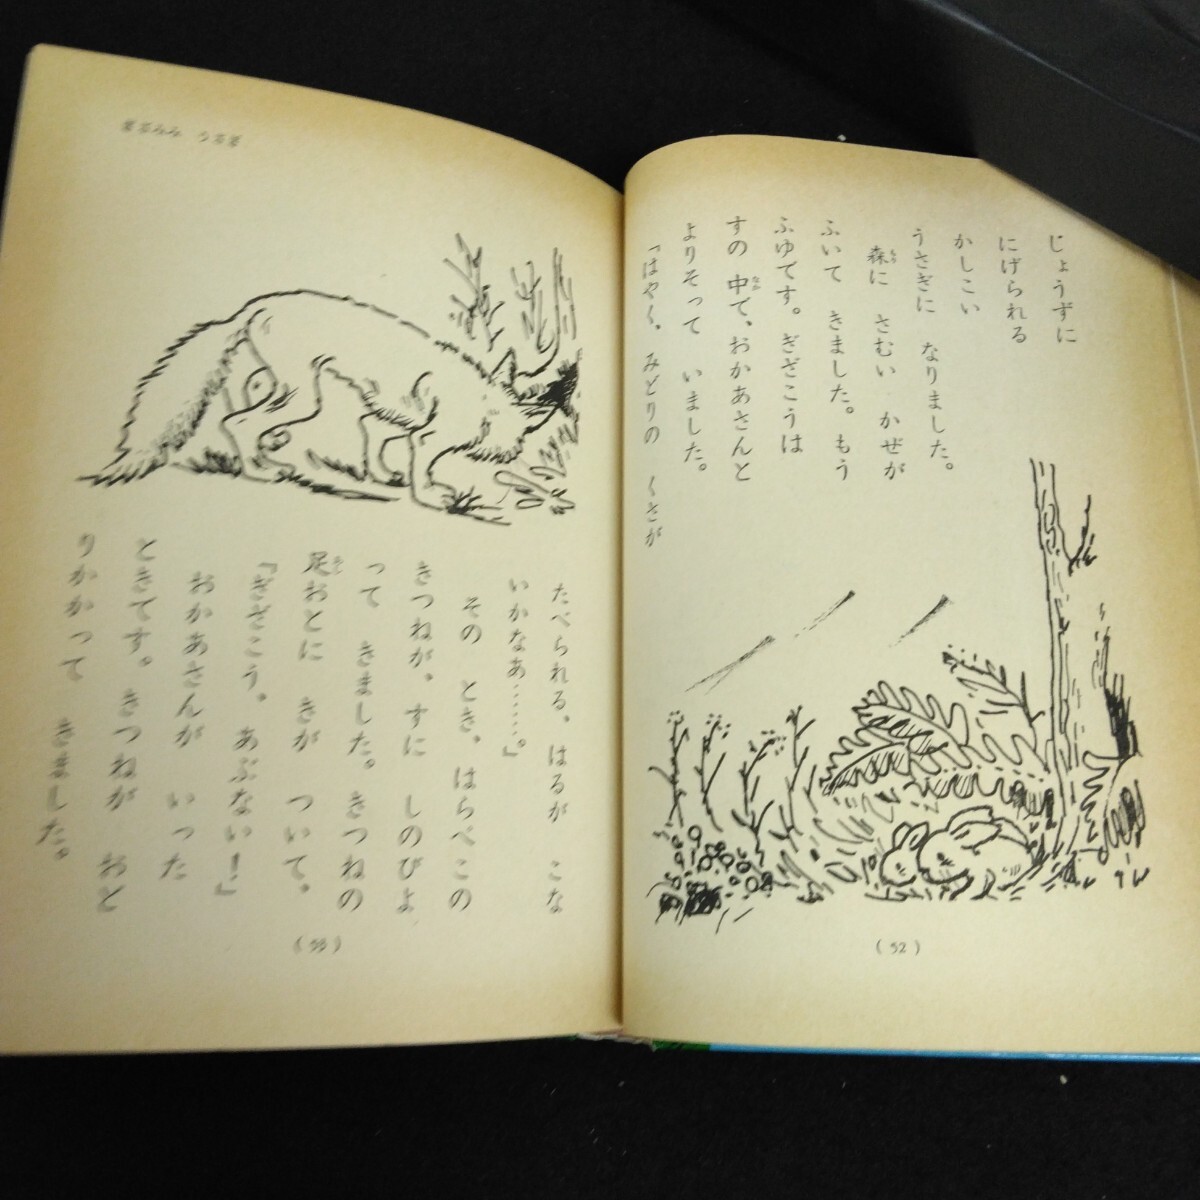 じょうずに
にげられる
かしこい
うさぎに なりました。
森に さむい かぜが
ふいて きました。もう
ふゆです。ぎざこうは
すの 中で、おかあさんと
よりそって いました。
「はやく、みどりの くさが
(52)
たべられる、はるが こな
いかなあ……。」
その とき、はらぺこの
きつねが、すに しのびよ
って きました。きつねの
足おとに きが ついて、
「ぎざこう。あぶない!」
おかあさんが いった
ときです。きつねが おど
りかかって きました。
(53)